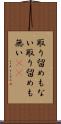 取り留めもな
い取り留めも
無い